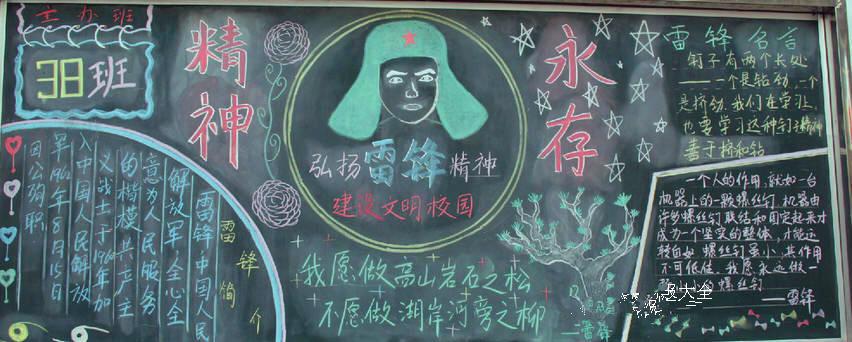 主办班
38班
精神
永存
弘扬雷锋精神
建设文明校园
雷锋简介
雷锋,中国人民
解放军,全心全
意为人民服务
的楷模,共产主
义战士于1960年加
入中国人民解放
军1962年8月15日
因公殉职
我愿做高山岩石之松
不愿做湖岸河旁之柳
——雷锋
雷锋名言
钉子有两个长处
——一个是钻劲,一个
是挤劲.我们在学习上,
也要学习这种钉子精神
善于挤和钻
一个人的作用,就如一台
机器上的一颗螺丝钉,机器由
许多螺丝钉联结和固定起来才
成为一个坚实的整体,才能运
转自如,螺丝钉虽小,其作用
不可低估.我愿永远做一
螺丝钉
——雷锋
大全